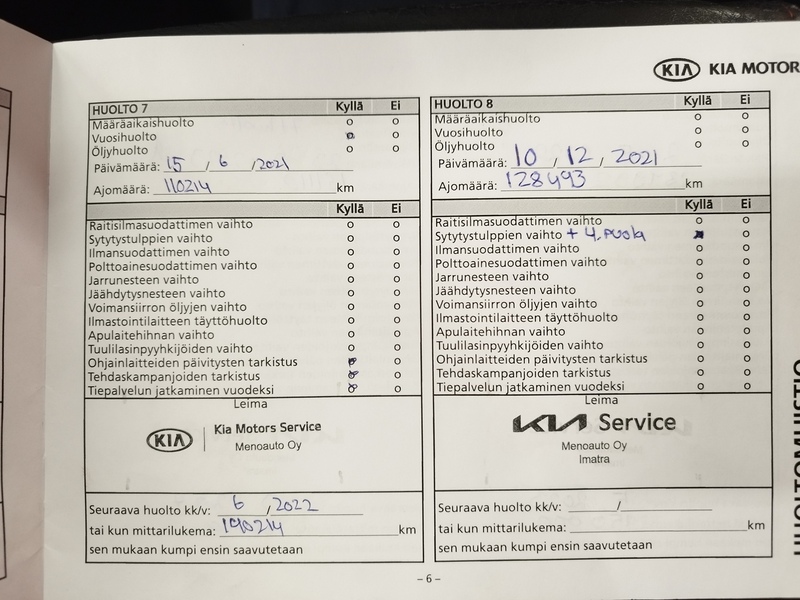 KIA KIA MOTOR
HUOLTO 7 Kyllä Ei
Määräaikaishuolto o o
Vuosihuolto o o
Öljyhuolto o o
Päivämäärä: 15 / 6 / 2021
Ajomäärä: 110214 km
Kyllä Ei
Raitisilmasuodattimen vaihto o o
Sytytystulppien vaihto o o
Ilmansuodattimen vaihto o o
Polttoainesuodattimen vaihto o o
Jarrunesteen vaihto o o
Jäähdytysnesteen vaihto o o
Voimansiirron öljyjen vaihto o o
Ilmastointilaitteen täyttöhuolto o o
Apulaitehihnan vaihto o o
Tuulilasinpyyhkijöiden vaihto o o
Ohjainlaitteiden päivitysten tarkistus o o
Tehdaskampanjoiden tarkistus o o
Tiepalvelun jatkaminen vuodeksi o o
Leima
KIA Kia Motors Service
Menoauto Oy
Seuraava huolto kk/v: 6 / 2022
tai kun mittarilukema: 140214 km
sen mukaan kumpi ensin saavutetaan
HUOLTO 8 Kyllä Ei
Määräaikaishuolto o o
Vuosihuolto o o
Öljyhuolto o o
Päivämäärä: 10 / 12 / 2021
Ajomäärä: 128493 km
Kyllä Ei
Raitisilmasuodattimen vaihto o o
Sytytystulppien vaihto + 4. puola o o
Ilmansuodattimen vaihto o o
Polttoainesuodattimen vaihto o o
Jarrunesteen vaihto o o
Jäähdytysnesteen vaihto o o
Voimansiirron öljyjen vaihto o o
Ilmastointilaitteen täyttöhuolto o o
Apulaitehihnan vaihto o o
Tuulilasinpyyhkijöiden vaihto o o
Ohjainlaitteiden päivitysten tarkistus o o
Tehdaskampanjoiden tarkistus o o
Tiepalvelun jatkaminen vuodeksi o o
Leima
KIA Service
Menoauto Oy
Imatra
Seuraava huolto kk/v: /
tai kun mittarilukema: km
sen mukaan kumpi ensin saavutetaan
HUOLTOMUISTIO
– 6 –